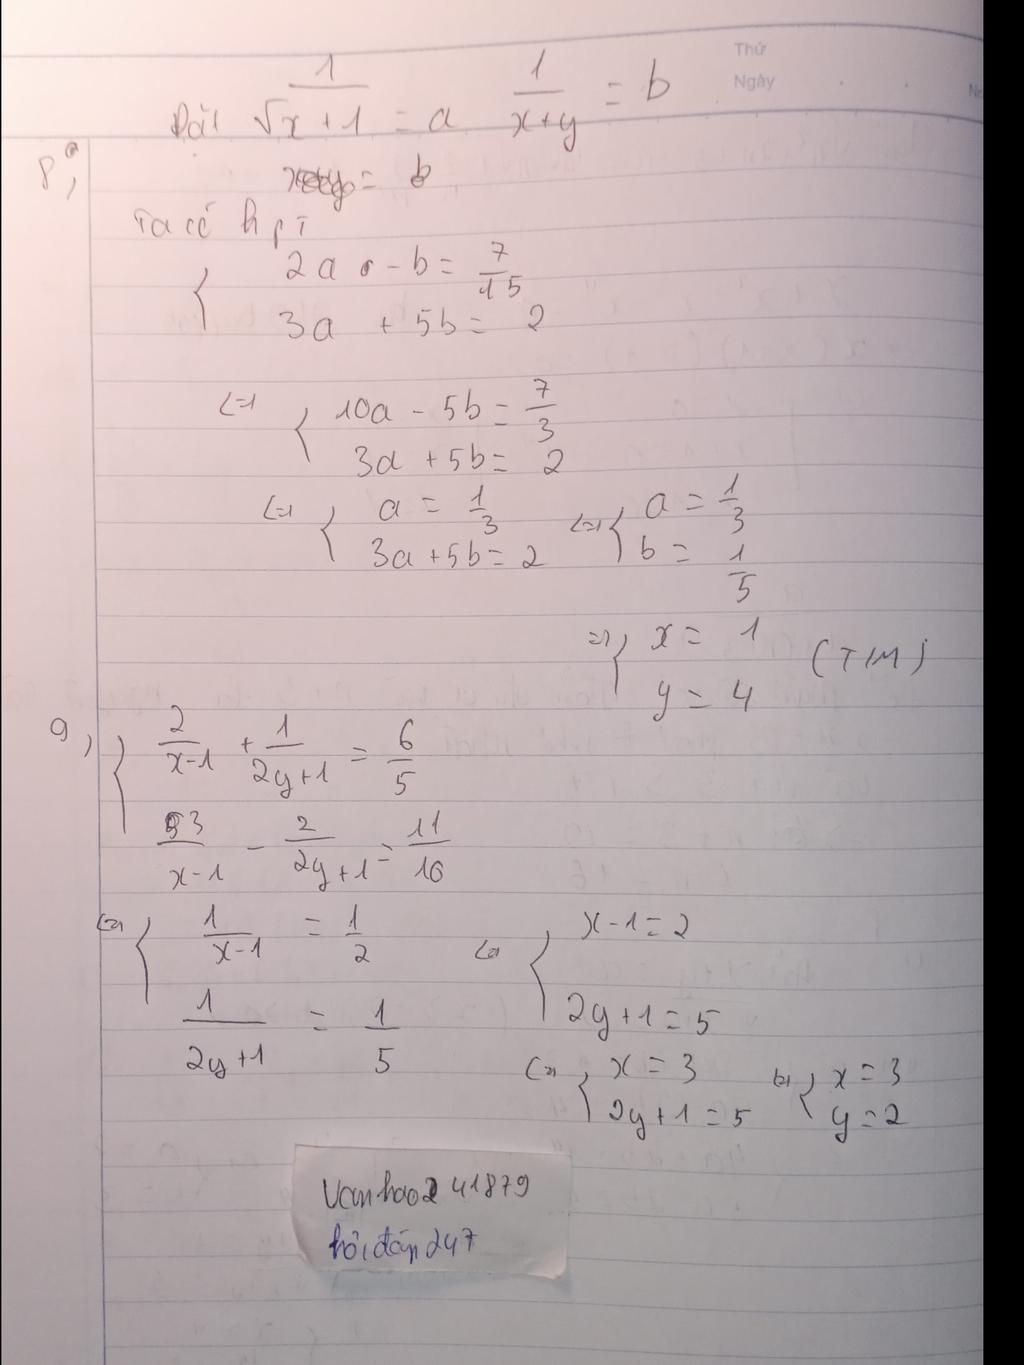 Thứ
Ngày
Đặt 1/(√x + 1) = a 1/(x+y) = b
8,
= b
Ta có hpt
{ 2a - b = 7/15
3a + 5b = 2
<=> { 10a - 5b = 7/3
3a + 5b = 2
<=> { a = 1/3 <=> { a = 1/3
3a + 5b = 2 b = 1/5
=> { x = 1 (T/M)
y = 4
9, { 2/(x-1) + 1/(2y+1) = 6/5
3/(x-1) - 2/(2y+1) = 11/10
<=> { 1/(x-1) = 1/2 <=> { x-1 = 2
1/(2y+1) = 1/5 2y+1 = 5
<=> { x = 3 <=> { x = 3
2y+1 = 5 y = 2
Vanhao241879
hỏi đáp 247